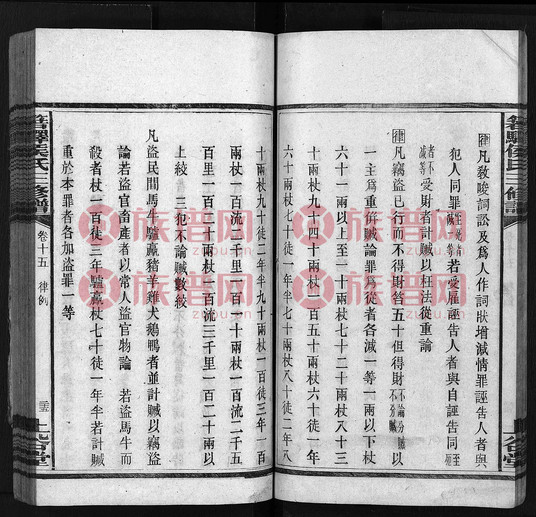 侯氏三修譜
律凡教唆詞訟及爲人作詞狀增減情罪誣告人者與
犯人同罪若受雇誣告人者與自誣告同至死
者不減等受財者計贓以枉法從重論
律凡竊盜已行而不得財笞五十但得財不論分贓以
一主爲重併贓論罪爲從者各減一等一兩以下杖
六十一兩以上至一十兩杖七十二十兩杖八十三
十兩杖九十四十兩杖一百五十兩杖六十徒一年
六十兩杖七十徒一年半七十兩杖八十徒二年八
十兩杖九十徒二年半九十兩杖一百徒三年一百
兩杖一百流二千里一百一十兩杖一百流二千五
百里一百二十兩杖一百流三千里一百二十兩以
上絞 三犯不論贓數絞
凡盜民間馬牛驢驘豬羊雞犬鵝鴨者並計贓以竊盜
論若盜官畜產者以常人盜官物論 若盜馬牛而
殺者杖一百徒三年驢驘杖七十徒一年半若計贓
重於本罪者各加盜罪一等
侯氏三修譜 卷十五 律例 上谷堂
族谱网
zupu.cn